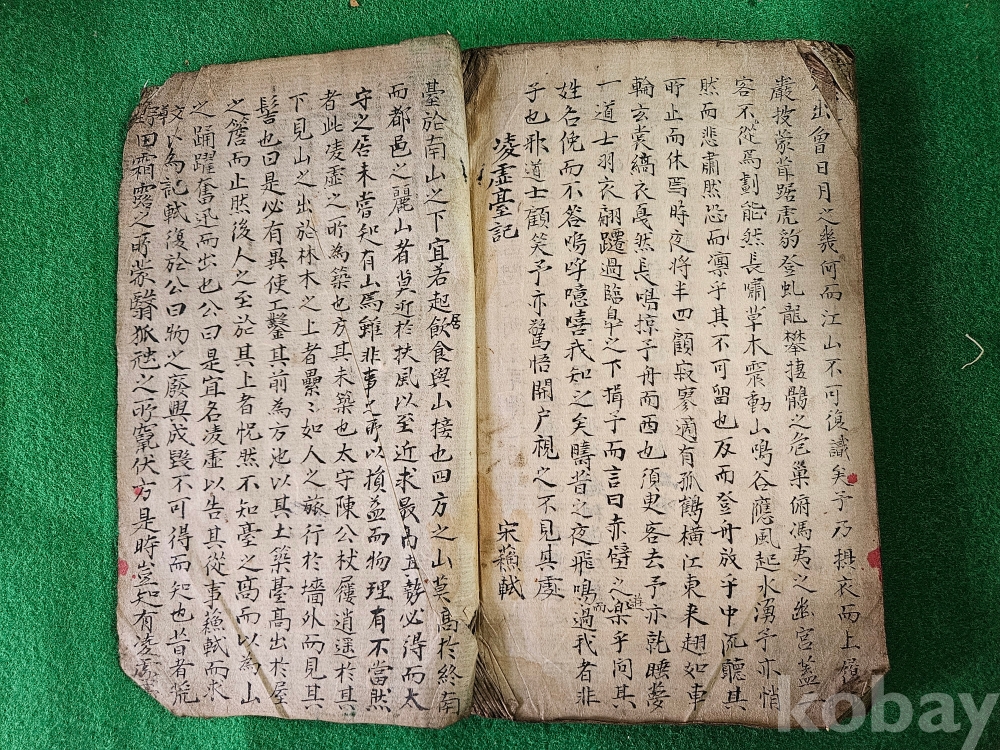 出曾日月之幾何而江山不可復識矣予乃攝衣而上
巖披蒙茸踞虎豹登虬龍攀捿鶻之危巢俯馮夷之幽宮盖二
客不從焉劃能然長嘯草木震動山鳴谷應風起水湧予亦悄
然而悲肅然恐而凛乎其不可留也反而登舟放乎中流聽其
所止而休焉時夜将半四顧寂寥適有孤鶴橫江東来翅如車
輪玄裳縞衣戛然長鳴掠予舟而西也須臾客去予亦就睡夢
一道士羽衣翩躚過臨皐之下揖予而言曰赤壁之遊樂乎問其
姓名俛而不荅嗚呼噫嘻我知之矣疇昔之夜飛鳴過我者非
子也耶道士顧笑予亦驚悟開户視之不見其處
凌虛臺記 宋蘓軾
臺於南山之下宜若起居飲食與山接也四方之山莫高於終南
而都邑之麗山者莫近於扶風以至近求最高其勢必得而太
守之居未嘗知有山焉雖非事之所以損益而物理有不當然
者此凌虛之所為築也方其未築也太守陳公杖屨逍遥於其
下見山之出於林木之上者纍〻如人之旅行於墻外而見其
髻也曰是必有異使工鑿其前為方池以其土築臺高出於屋
之簷而止然後人之至於其上者怳然不知臺之高而以為山
之踊躍奮迅而出也公曰是宜名凌虛以告其從事蘓軾而求
文以為記軾復於公曰物之廢興成毀不可得而知也昔者荒
草野田霜露之所蒙翳狐虺之所竄伏方是時豈知有凌虛
kobay